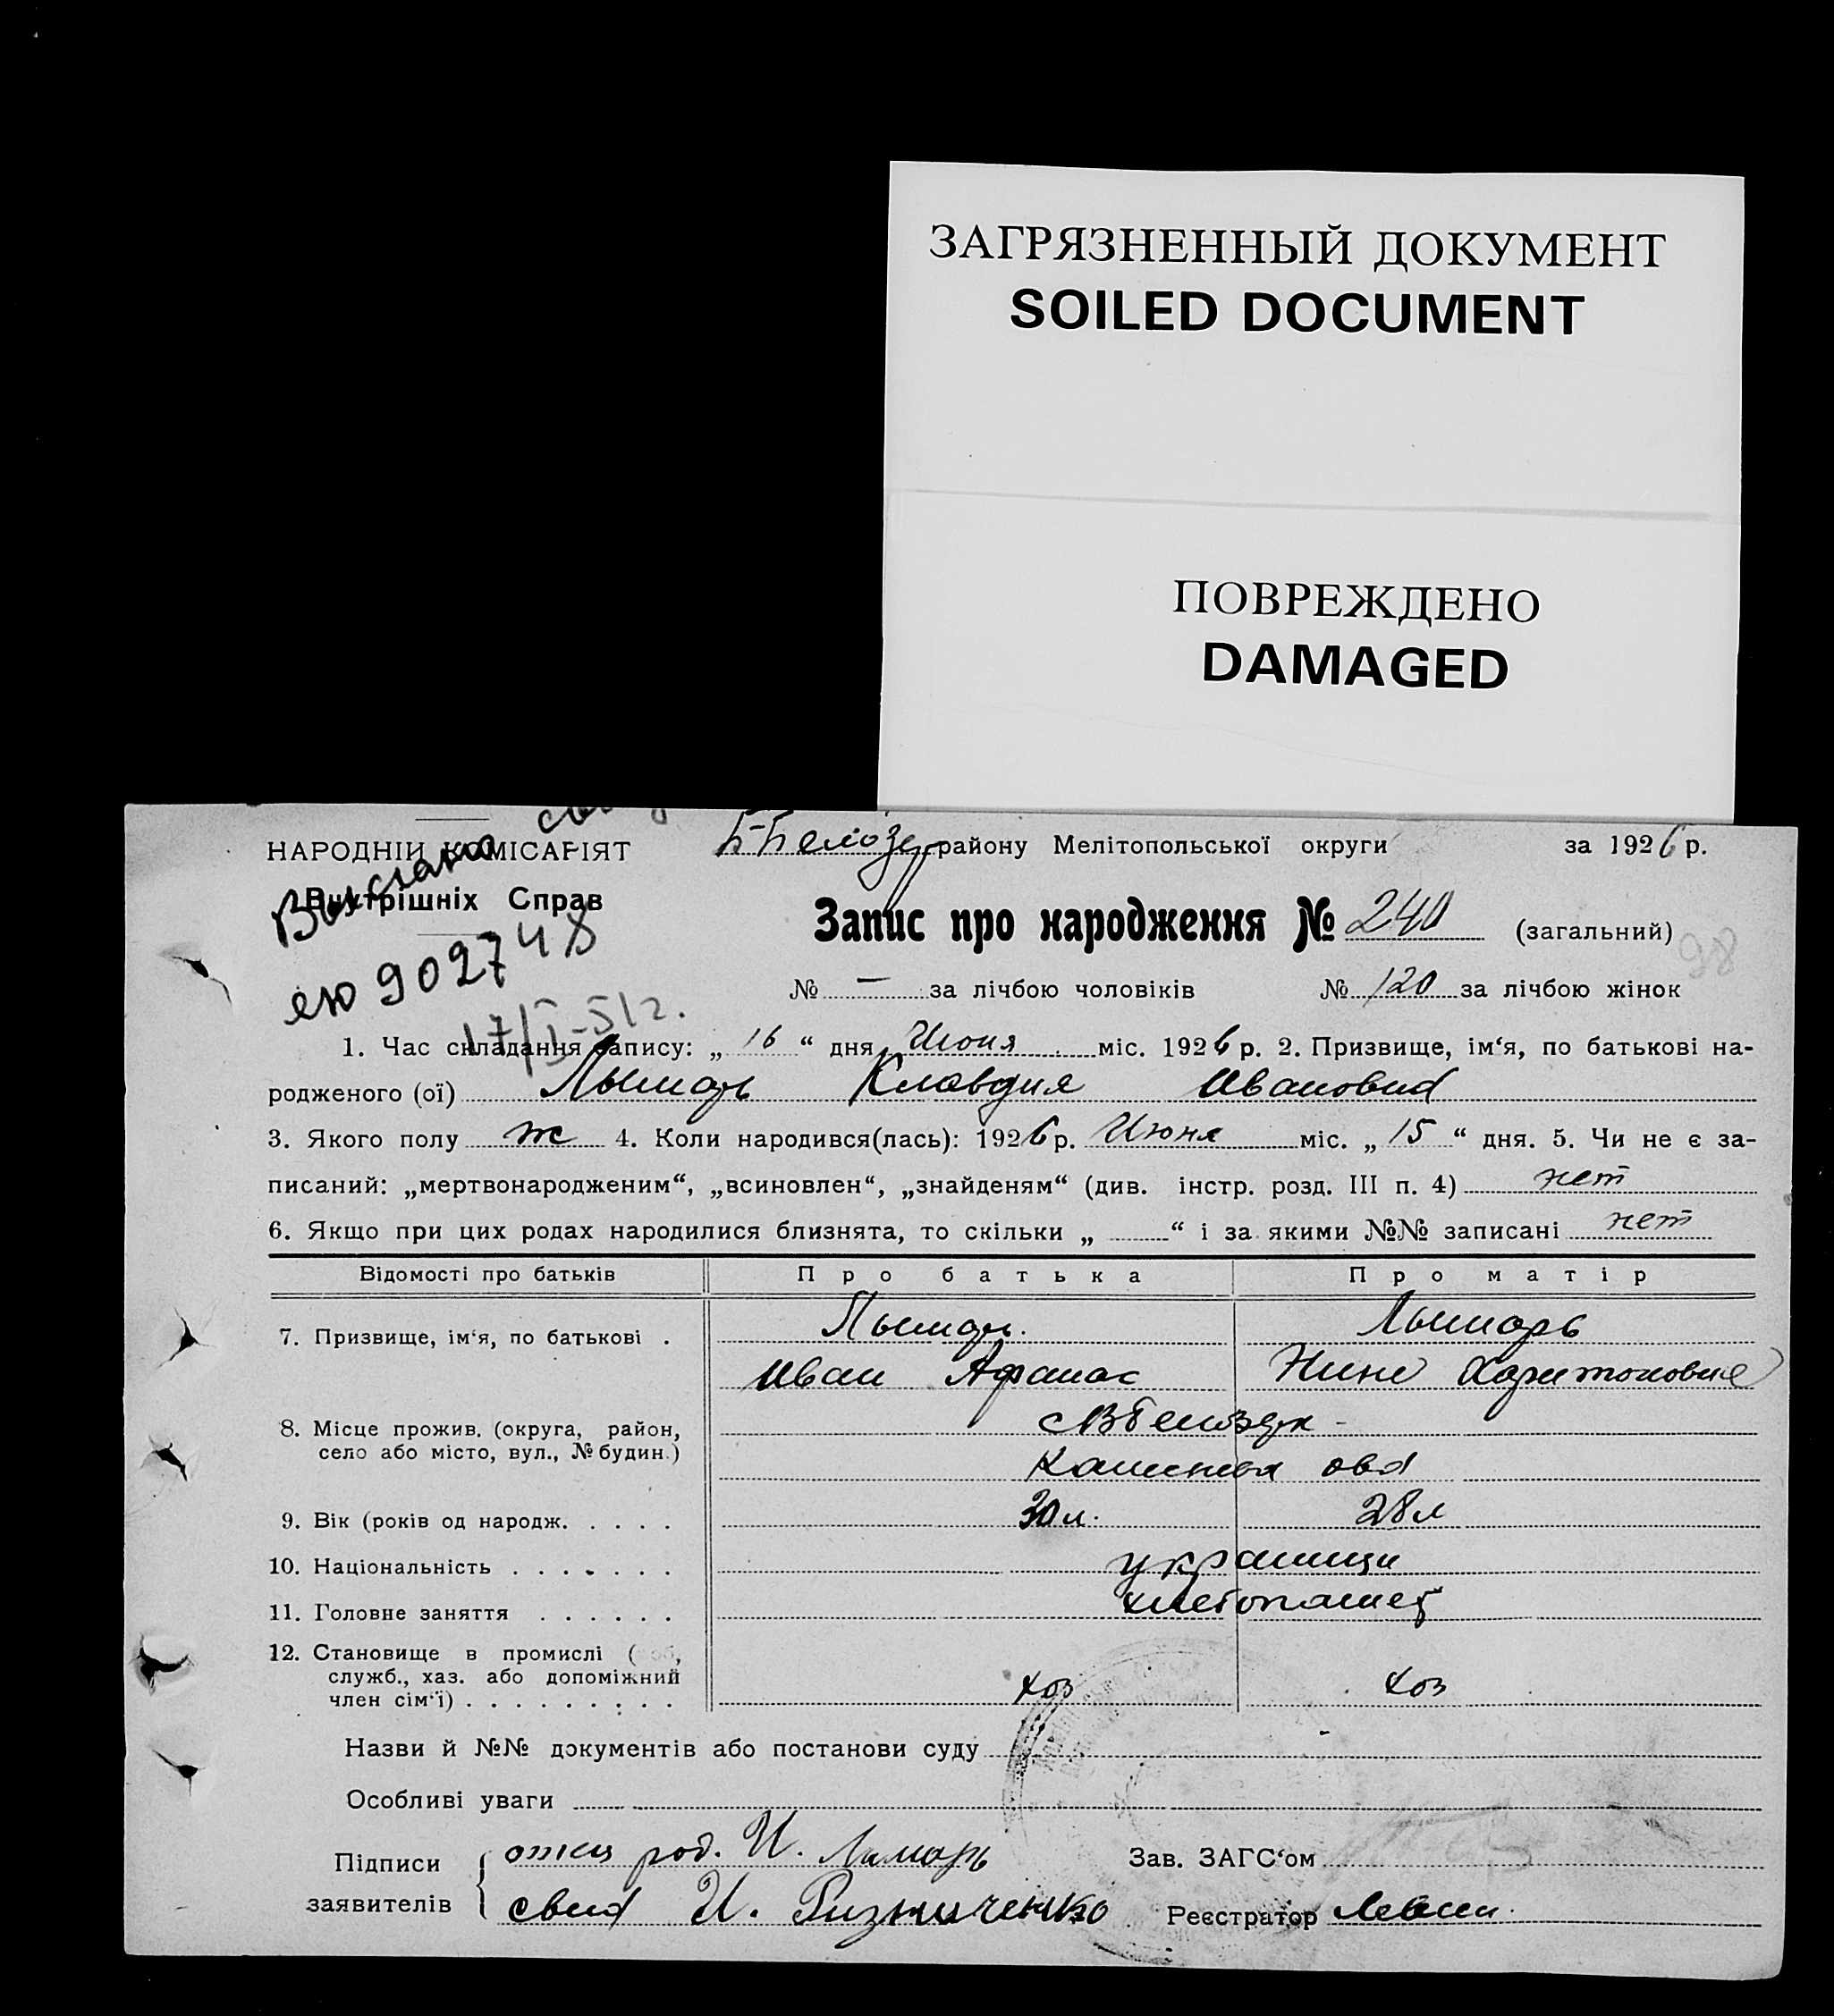 ЗАГРЯЗНЕННЫЙ ДОКУМЕНТ
SOILED DOCUMENT
ПОВРЕЖДЕНО
DAMAGED
НАРОДНІЙ КОМІСАРІЯТ
Внутрішніх Справ
Выслано
902748
17/I-51г.
Б-Белозер району Мелітопольської округи за 1926 р.
Запис про народження № 240 (загальний)
98
№ — за лічбою чоловіків № 120 за лічбою жінок
1. Час складання запису: „ 16 “ дня Июня міс. 1926 р. 2. Призвище, ім‘я, по батькові на-
родженого (ої) Лымарь Клавдия Ивановна
3. Якого полу ж 4. Коли народився(лась): 1926 р. Июня міс. „ 15 “ дня. 5. Чи не є за-
писаний: „мертвонародженим“, „всиновлен“, „знайденям“ (див. інстр. розд. III п. 4) нет
6. Якщо при цих родах народилися близнята, то скільки „ “ і за якими №№ записані нет
Відомості про батьків Про батька Про матір
7. Призвище, ім‘я, по батькові . Лымарь Лымарь
Иван Афанас Нина Харитоновна
8. Місце прожив. (округа, район,
село або місто, вул., № будин.)
9. Вік (років од народж. . . . . 30 л. 28 л
10. Національність . . . . . . . украинци
11. Головне заняття . . . . . . хлебопашец
12. Становище в промислі ( об,
служб., хаз. або допоміжний
член сім‘ї) . . . . . . . . . хоз хоз
Назви й №№ документів або постанови суду
Особливі уваги
Підписи
заявителів
отец род. И. Лымарь
свид И. Ризниченко
Зав. ЗАГС‘ом
Реєстратор